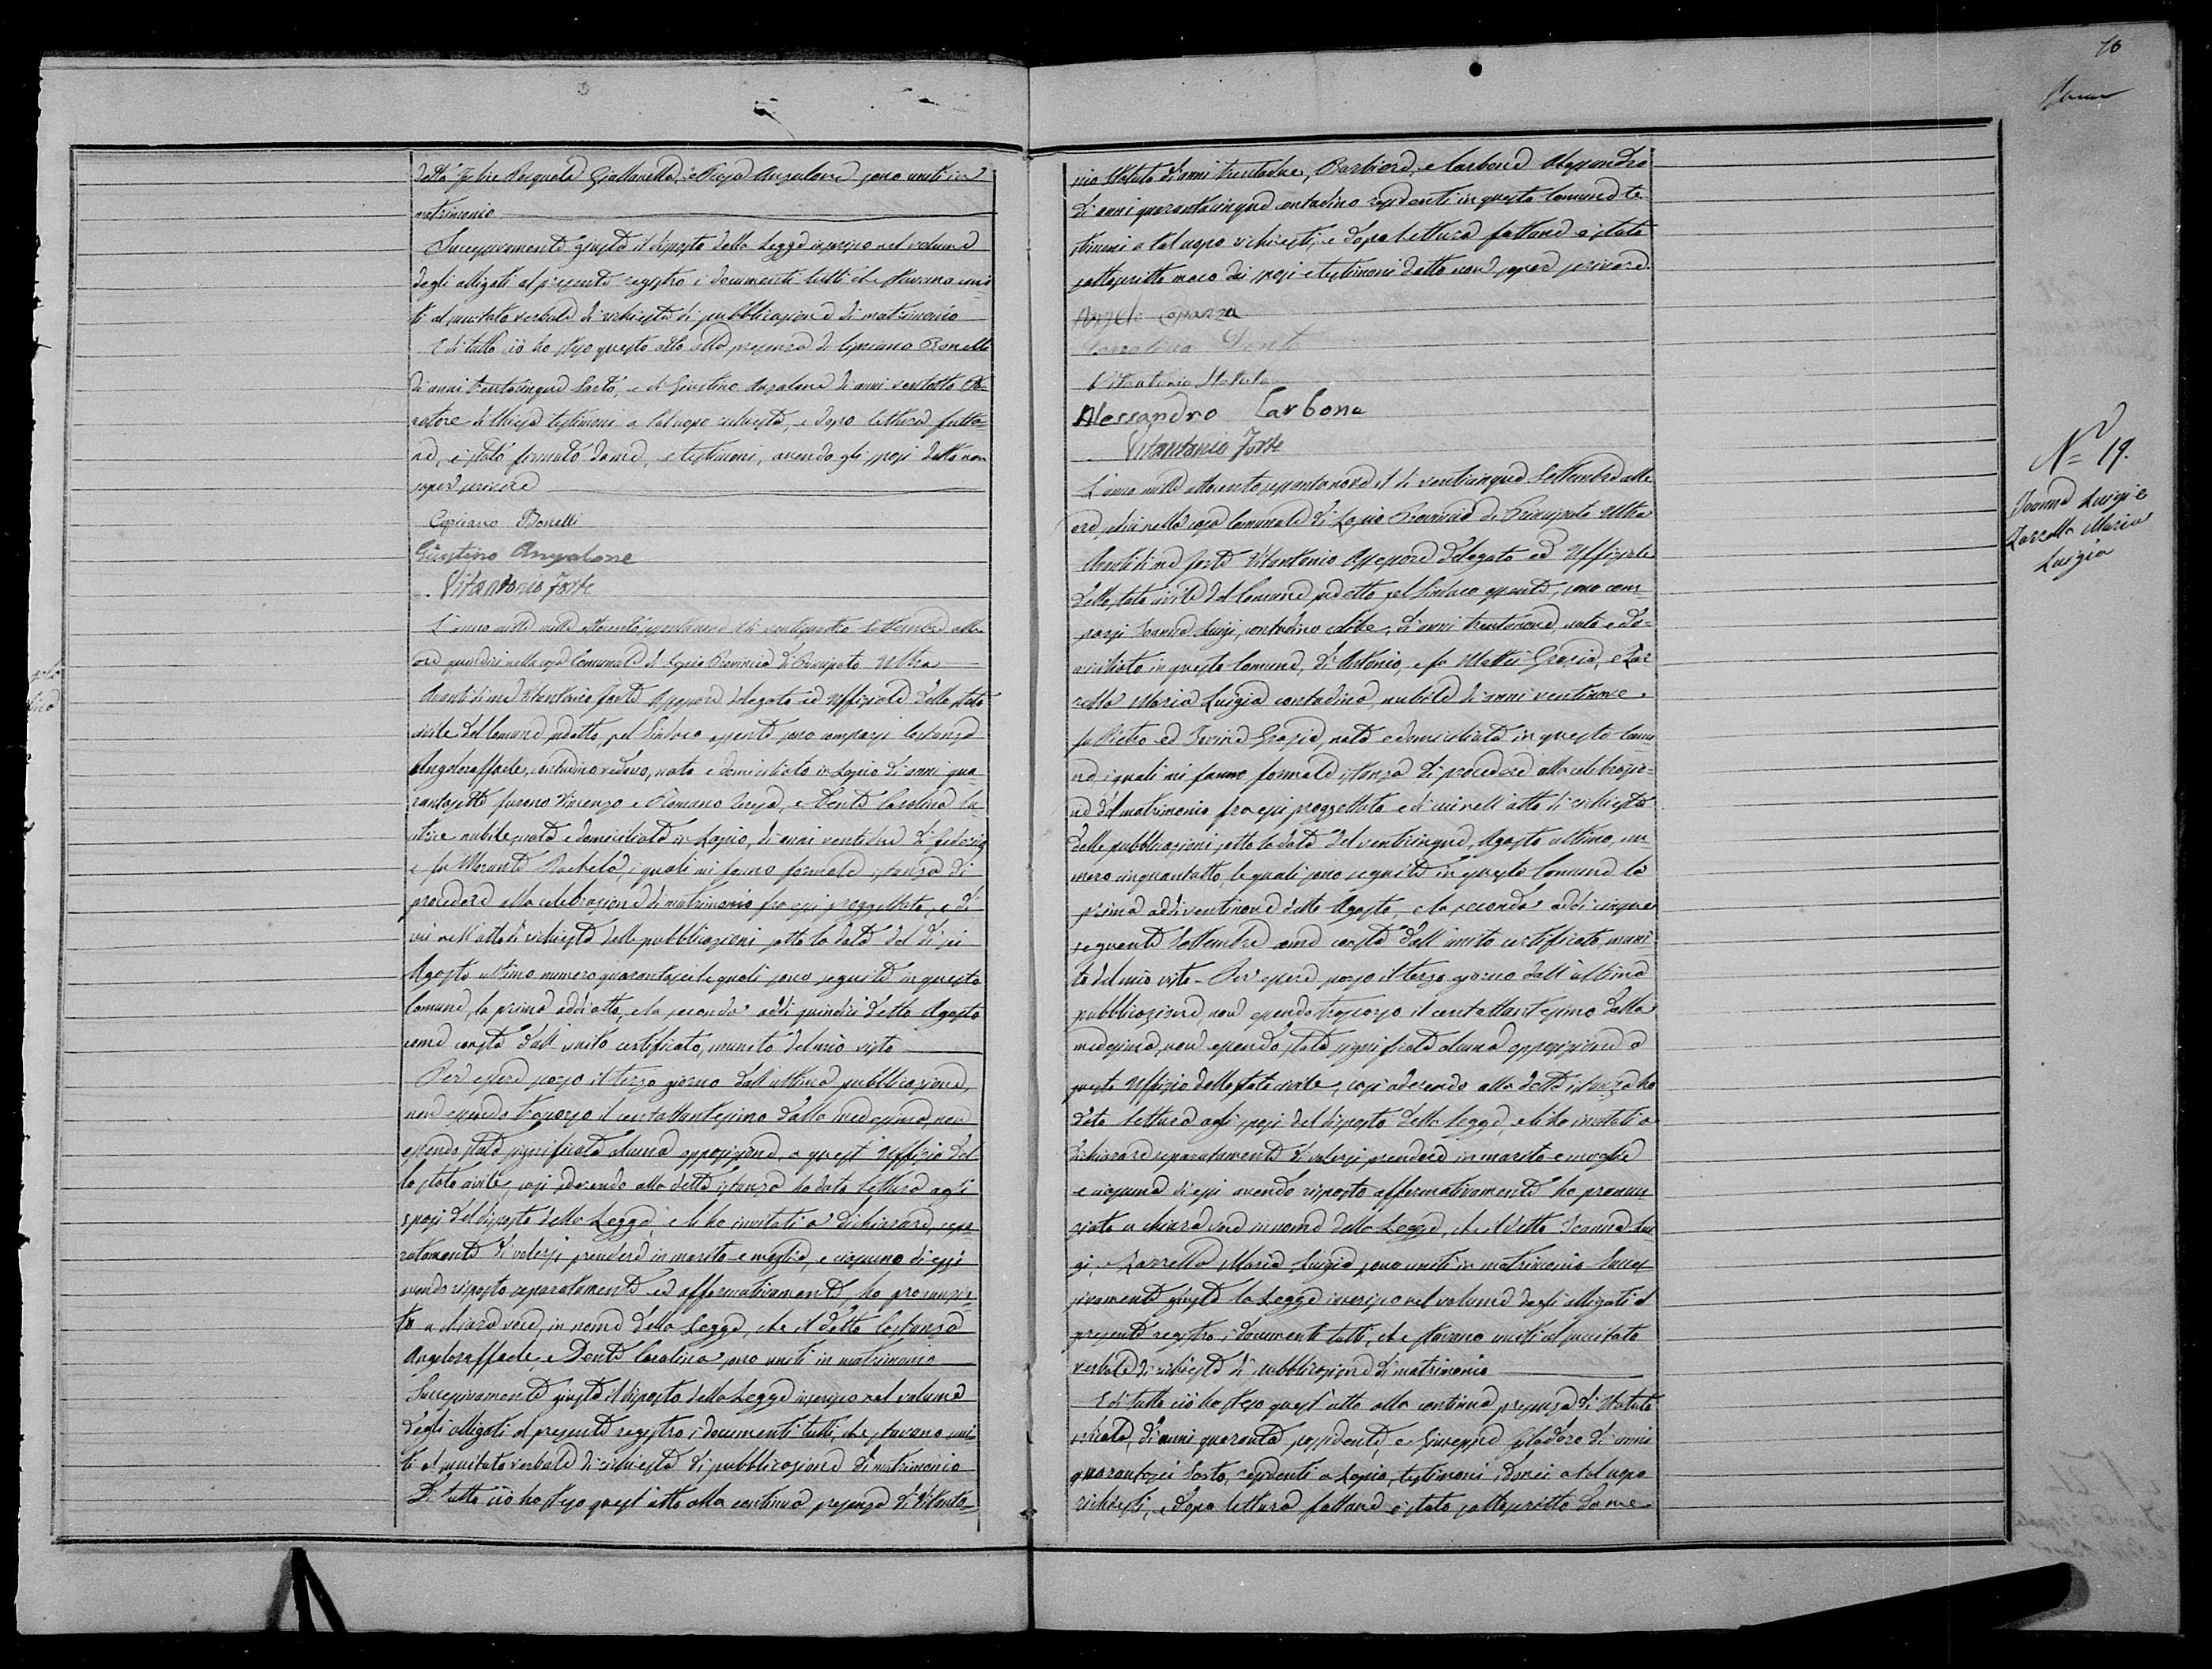 detto Felice Pasquale Giallanella, e Rosa Anzalone sono uniti in
matrimonio
Successivamente giusta il disposto della Legge inserisco nel volume
degli alligati al presente registro i documenti tutti che stavano uni-
ti al succitato verbale di richiesta di pubblicazione di matrimonio
E di tutto ciò ho steso questo atto alla presenza di Cipriano Bonelli
di anni trentacinque Sarto, e di Giustino Anzalone di anni ventotto
testimoni a tal uopo richiesti, e dopo lettura fatta-
ne, è stato firmato da me, e testimoni, avendo gli sposi detto non
saper scrivere
Cipriano Bonelli
Giustino Anzalone
Vitantonio Forte
L'anno mille mille ottocento settantanove il dì ventiquattro Settembre alle
ore quindici nella casa Comunale di Lapio Provincia di Principato Ultra
Avanti di me Vitantonio Forte Assessore delegato ed Uffiziale dello stato
civile del Comune sudetto, pel Sindaco assente sono comparsi Costanza
Angeloraffaele, contadino vedovo, nato e domiciliato in Lapio di anni qua-
rantasette furono Vincenzo e Romano Teresa, e Dente Carolina cu-
citrice nubile, nata e domiciliata in Lapio, di anni ventidue di Federico,
e fu Morante Rachela, i quali mi fanno formale istanza di
procedere alla celebrazione di matrimonio fra essi progettato, e di
cui nell'atto di richiesta delle pubblicazioni sotto la data del dì sei
Agosto ultimo numero quarantasei le quali sono seguite in questo
Comune, la prima addì otto, e la seconda addì quindici detto Agosto
come consta dall'unito certificato, munito del mio visto
Per essere scorso il terzo giorno dall'ultima pubblicazione,
non essendo trascorso il centottantesimo dalla medesima, non
essendo stata significata alcuna opposizione, a quest'Uffizio del-
lo stato civile, così aderendo alla detta istanza ho dato lettura agli
sposi del disposto della Legge, e li ho invitati a dichiarare, sepa-
ratamente di volersi prendere in marito e moglie, e ciascuno di essi
avendo risposto separatamente ed affermativamente, ho pronunzia-
to a chiara voce, in nome della Legge, che il detto Costanza
Angeloraffaele e Dente Carolina, sono uniti in matrimonio
Successivamente giusta il disposto della Legge inserisco nel volume
degli alligati al presente registro, i documenti tutti, che stavano uni-
ti al succitato verbale di richiesta di pubblicazione di matrimonio
Di tutto ciò ho steso quest'atto alla continua presenza di Vitanto-
16
nio Statuto di anni trentadue, Barbiere, e Carbone Alessandro
di anni quarantacinque contadino residenti in questo Comune te-
stimoni a tal uopo richiesti, e dopo lettura fattane è stato
sottoscritto meco dai sposi e testimoni detto non saper scrivere.
Vitantonio Statuto
Alessandro Carbone
Vitantonio Forte
L'anno mille ottocento settantanove il dì venticinque Settembre alle
ore dieci nella casa Comunale di Lapio Provincia di Principato Ultra
Avanti di me Forte Vitantonio Assessore delegato ed Uffiziale
dello stato civile del Comune sudetto pel Sindaco assente, sono com-
parsi Ioanna Luigi, contadino celibe, di anni trentanove, nato e do-
miciliato in questo Comune, di Antonio, e fu Mattei Grazia, e Zar-
rella Maria Luigia contadina, nubile di anni ventinove.
fu Pietro ed Iovine Grazia, nata e domiciliata in questo Comu-
ne, i quali mi fanno formale istanza di procedere alla celebrazio-
ne del matrimonio fra essi proggettato e di cui nell'atto di richiesta
delle pubblicazioni, sotto la data del venticinque, Agosto ultimo, nu-
mero cinquantotto, le quali sono seguite in questo Comune la
prima addì ventinove detto Agosto, e la seconda addì cinque
seguente Settembre come consta dall'unito certificato, muni-
to del mio visto. Per essere scorso il terzo giorno dall'ultima
pubblicazione, non essendo trascorso il centottantesimo dalla
medesima, non essendo stata significata alcuna opposizione a
questo Uffizio dello stato civile, così aderendo alla detta istanza ho
dato lettura agli sposi del disposto della Legge, e li ho invitati a
dichiarare separatamente di volersi prendere in marito e moglie
e ciascuno di essi avendo risposto affermativamente ho pronun-
ziato a chiara voce in nome della Legge, che il detto Ioanna Lui-
gi, e Zarrella Maria Luigia sono uniti in matrimonio Succes-
sivamente giusta la Legge inserisco nel volume degli alligati al
presente registro, i documenti tutti, che stavano uniti al succitato
verbale di richiesta di pubblicazione di matrimonio
E di tutto ciò ho steso quest'atto alla continua presenza di Statuto
di anni quaranta possidente, e Giuseppe di anni
quarantasei Sarto, residenti a Lapio, testimoni idonei a tal uopo
richiesti, e dopo lettura fattane è stato sottoscritto da me
N.º 19.
Ioanna Luigi e
Zarrella Maria
Luigia